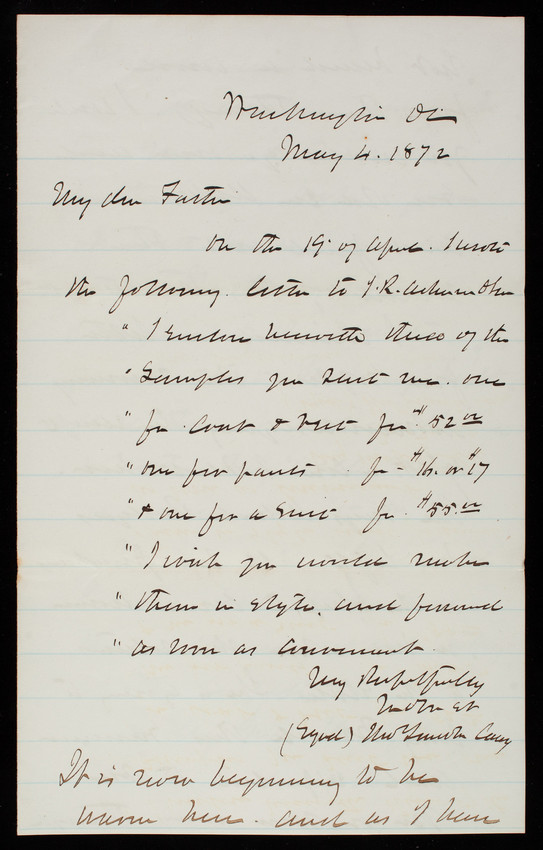 Washington DC
May 4. 1872
My dear Foster
On the 19 of April. I wrote
the following. letter to J. R.
" I enclose herewith three of the
" Samples you sent me. one
" for Coat & Vest for $52 00
" one for pants for - $16. or $17
" & one for a Suit for $55.00
" I wish you would make
" them in style. and forward
" as soon as convenient.
Very Respectfully
(Signed) Thos Lincoln Casey
It is now beginning to be
warm here. and as I have